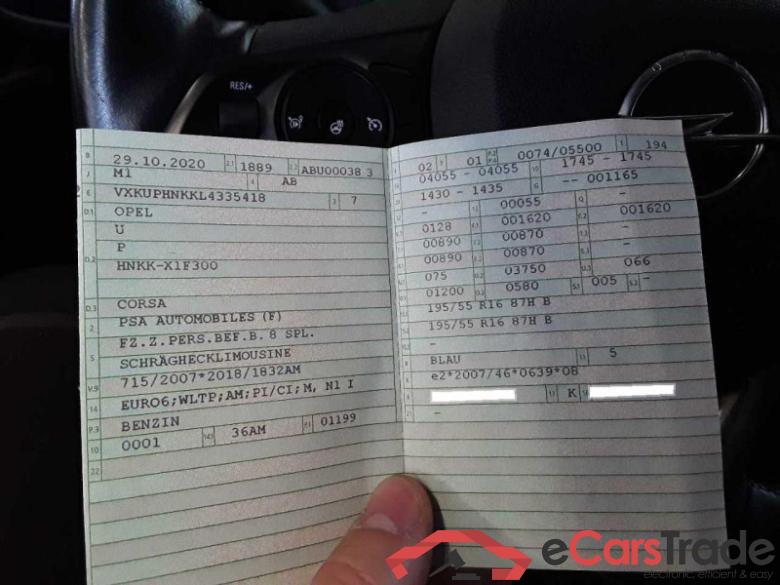 RES/+
B 29.10.2020 2.1 1889 2.2 ABU00038 3
J M1 4 AB
E VXKUPHNKKL4335418 3 7
D.1 OPEL
U
P
D.2 HNKK-X1F300
D.3 CORSA
2 PSA AUTOMOBILES (F)
FZ.Z.PERS.BEF.B. 8 SPL.
5 SCHRÄGHECKLIMOUSINE
V.9 715/2007*2018/1832AM
14 EURO6;WLTP;AM;PI/CI;M, N1 I
P.3 BENZIN
10 0001 14.1 36AM P.1 01199
22
02 9 01 P.2 P.4 0074/05500 T 194
18 04055 - 04055 19 1745 - 1745
20 1430 - 1435 G -- 001165
- 00055 Q -
0128 001620 001620
00890 00870 -
00890 00870 -
075 03750 U.3 066
01200 0580 S.1 005 S.2 -
195/55 R16 87H B
195/55 R16 87H B
-
BLAU 11 5
e2*2007/46*0639*08
17 K 16
-
eCarsTrade
electronic, efficient & easy